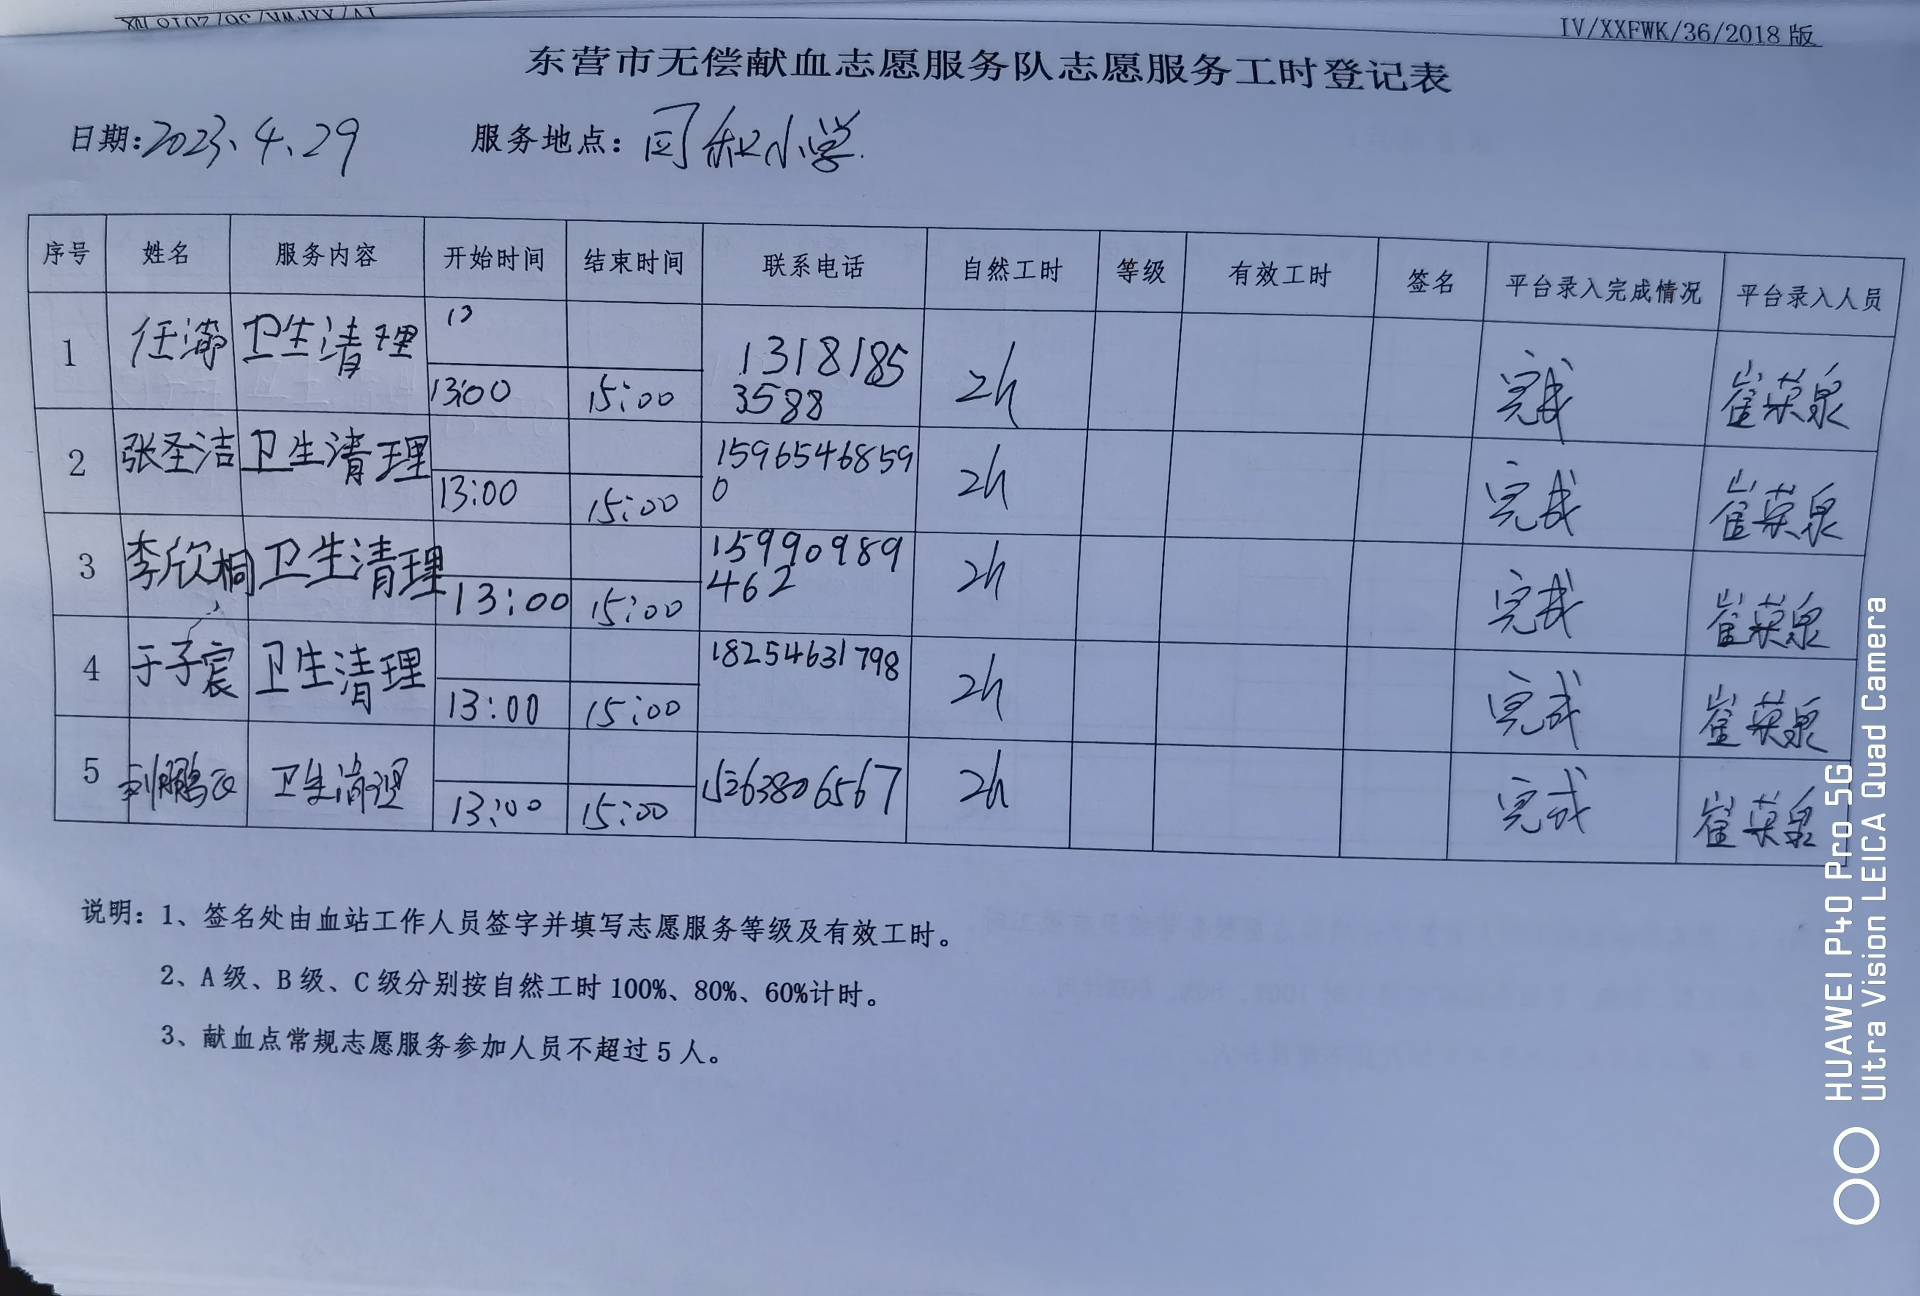 IV/XXFWK/36/2018版
东营市无偿献血志愿服务队志愿服务工时登记表
日期:2023、4、29 服务地点:司和小学.
序号 姓名 服务内容 开始时间 结束时间 联系电话 自然工时 等级 有效工时 签名 平台录入完成情况 平台录入人员
1 任 卫生清理 13:00 15:00 13181853588 2h 完成 崔荣泉
2 张圣洁 卫生清理 13:00 15:00 15965468590 2h 完成 崔荣泉
3 李欣桐 卫生清理 13:00 15:00 15990989462 2h 完成 崔荣泉
4 于子宸 卫生清理 13:00 15:00 18254631798 2h 完成 崔荣泉
5 刘鹏 卫生清理 13:00 15:00 15263806567 2h 完成 崔荣泉
说明:1、签名处由血站工作人员签字并填写志愿服务等级及有效工时。
2、A级、B级、C级分别按自然工时100%、80%、60%计时。
3、献血点常规志愿服务参加人员不超过5人。
HUAWEI P40 Pro 5G
Ultra Vision LEICA Quad Camera